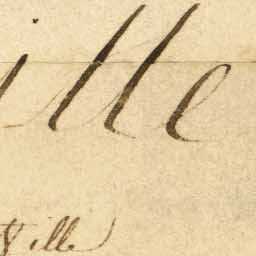 ille
Ville